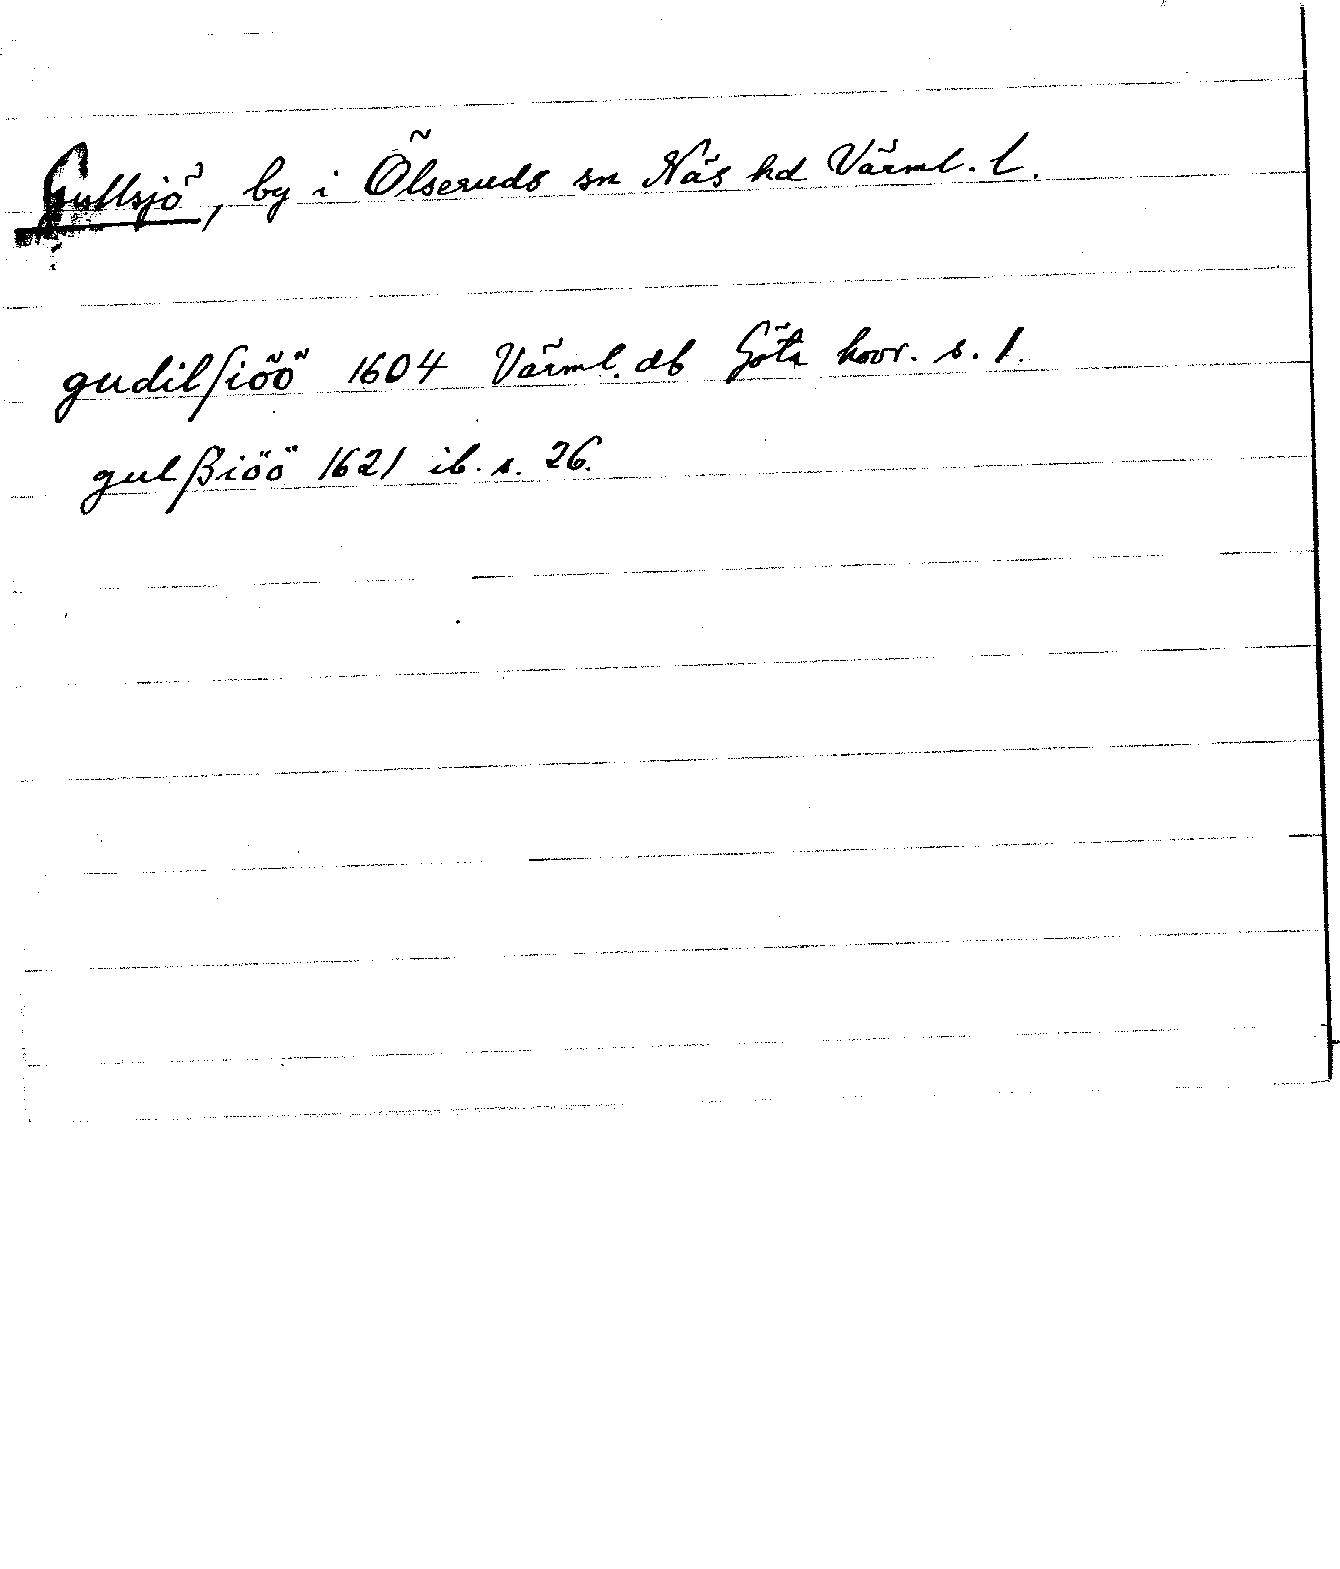 Gullsjö, by i Ölseruds sn Näs hd Värml. l.
gudilſiöö 1604 Värml. db Göta hovr. s. 1.
gulßiöö 1621 ib. s. 26.